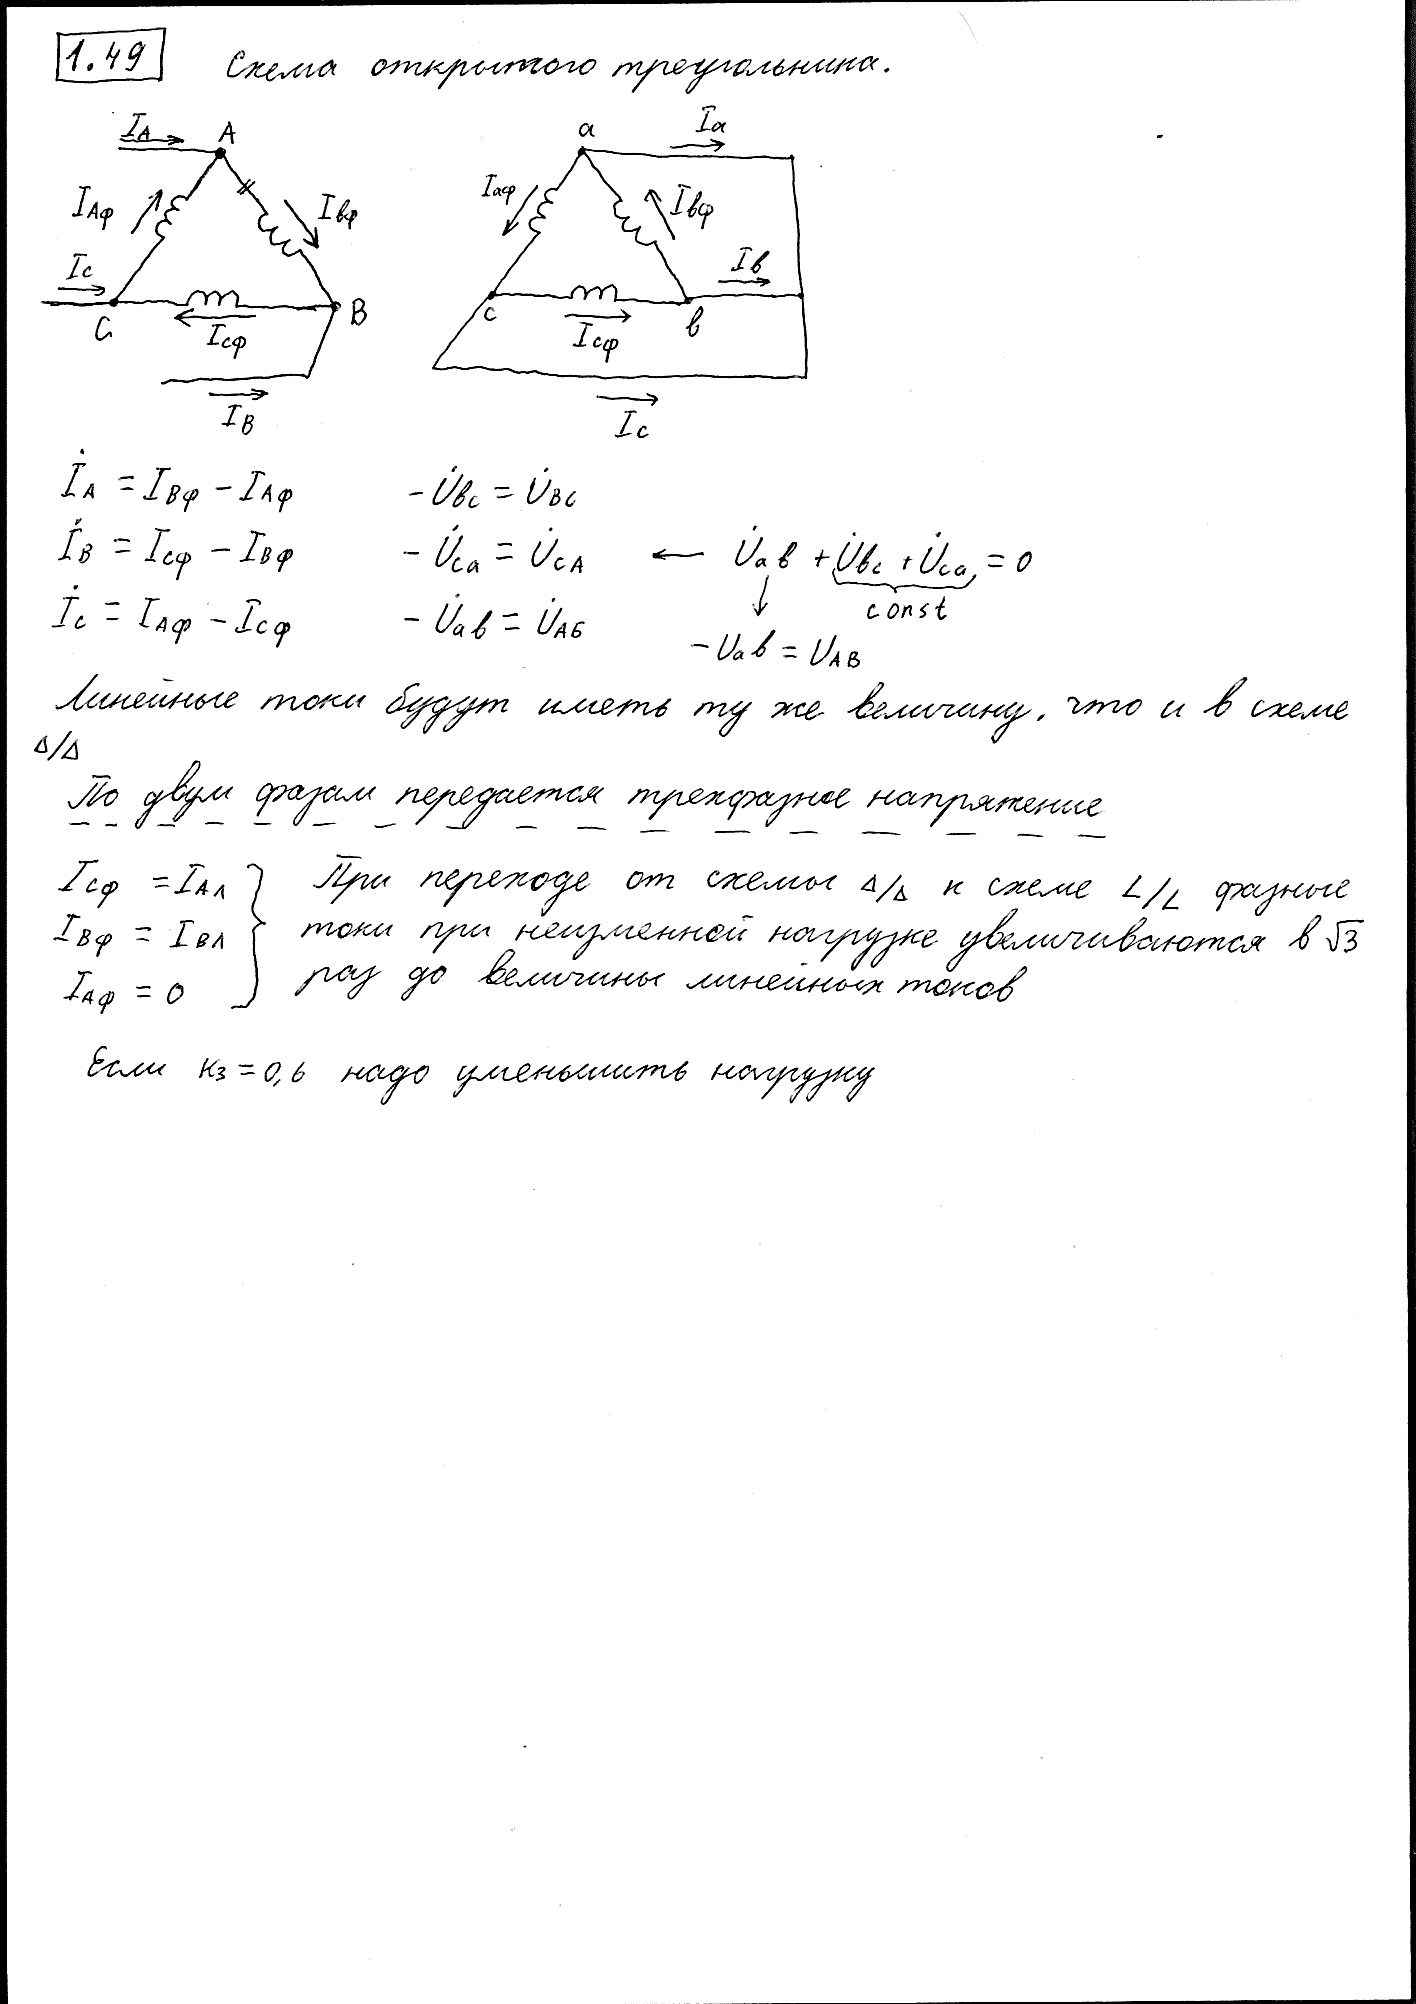 1.49 Схема открытого треугольника.
IA A
IAф IВф
IC
C B
ICф
IB
a Ia
Iaф Iвф
Iв
c в
Icф
Ic
İA = IВф - IАф -U̇вc = U̇BC
İB = ICф - IВф -U̇ca = U̇CA ← U̇aв + U̇вc + U̇ca = 0
const
İC = IАф - ICф -U̇aв = U̇АБ
-Uaв = UAB
Линейные токи будут иметь ту же величину, что и в схеме
Δ/Δ
По двум фазам передается трехфазное напряжение
ICф = IАл } При переходе от схемы Δ/Δ к схеме ∠/∠ фазные
IВф = IВл токи при неизменной нагрузке увеличиваются в √3
IАф = 0 раз до величины линейных токов
Если кз = 0,6 надо уменьшить нагрузку